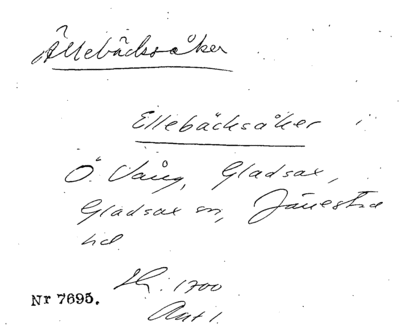 Ällebäcksåker
Ellebäcksåker i
Ö. Vång, Gladsax,
Gladsax sn, Järrestad
hd
Sk. 1700
Akt 1.
Nr 7695.